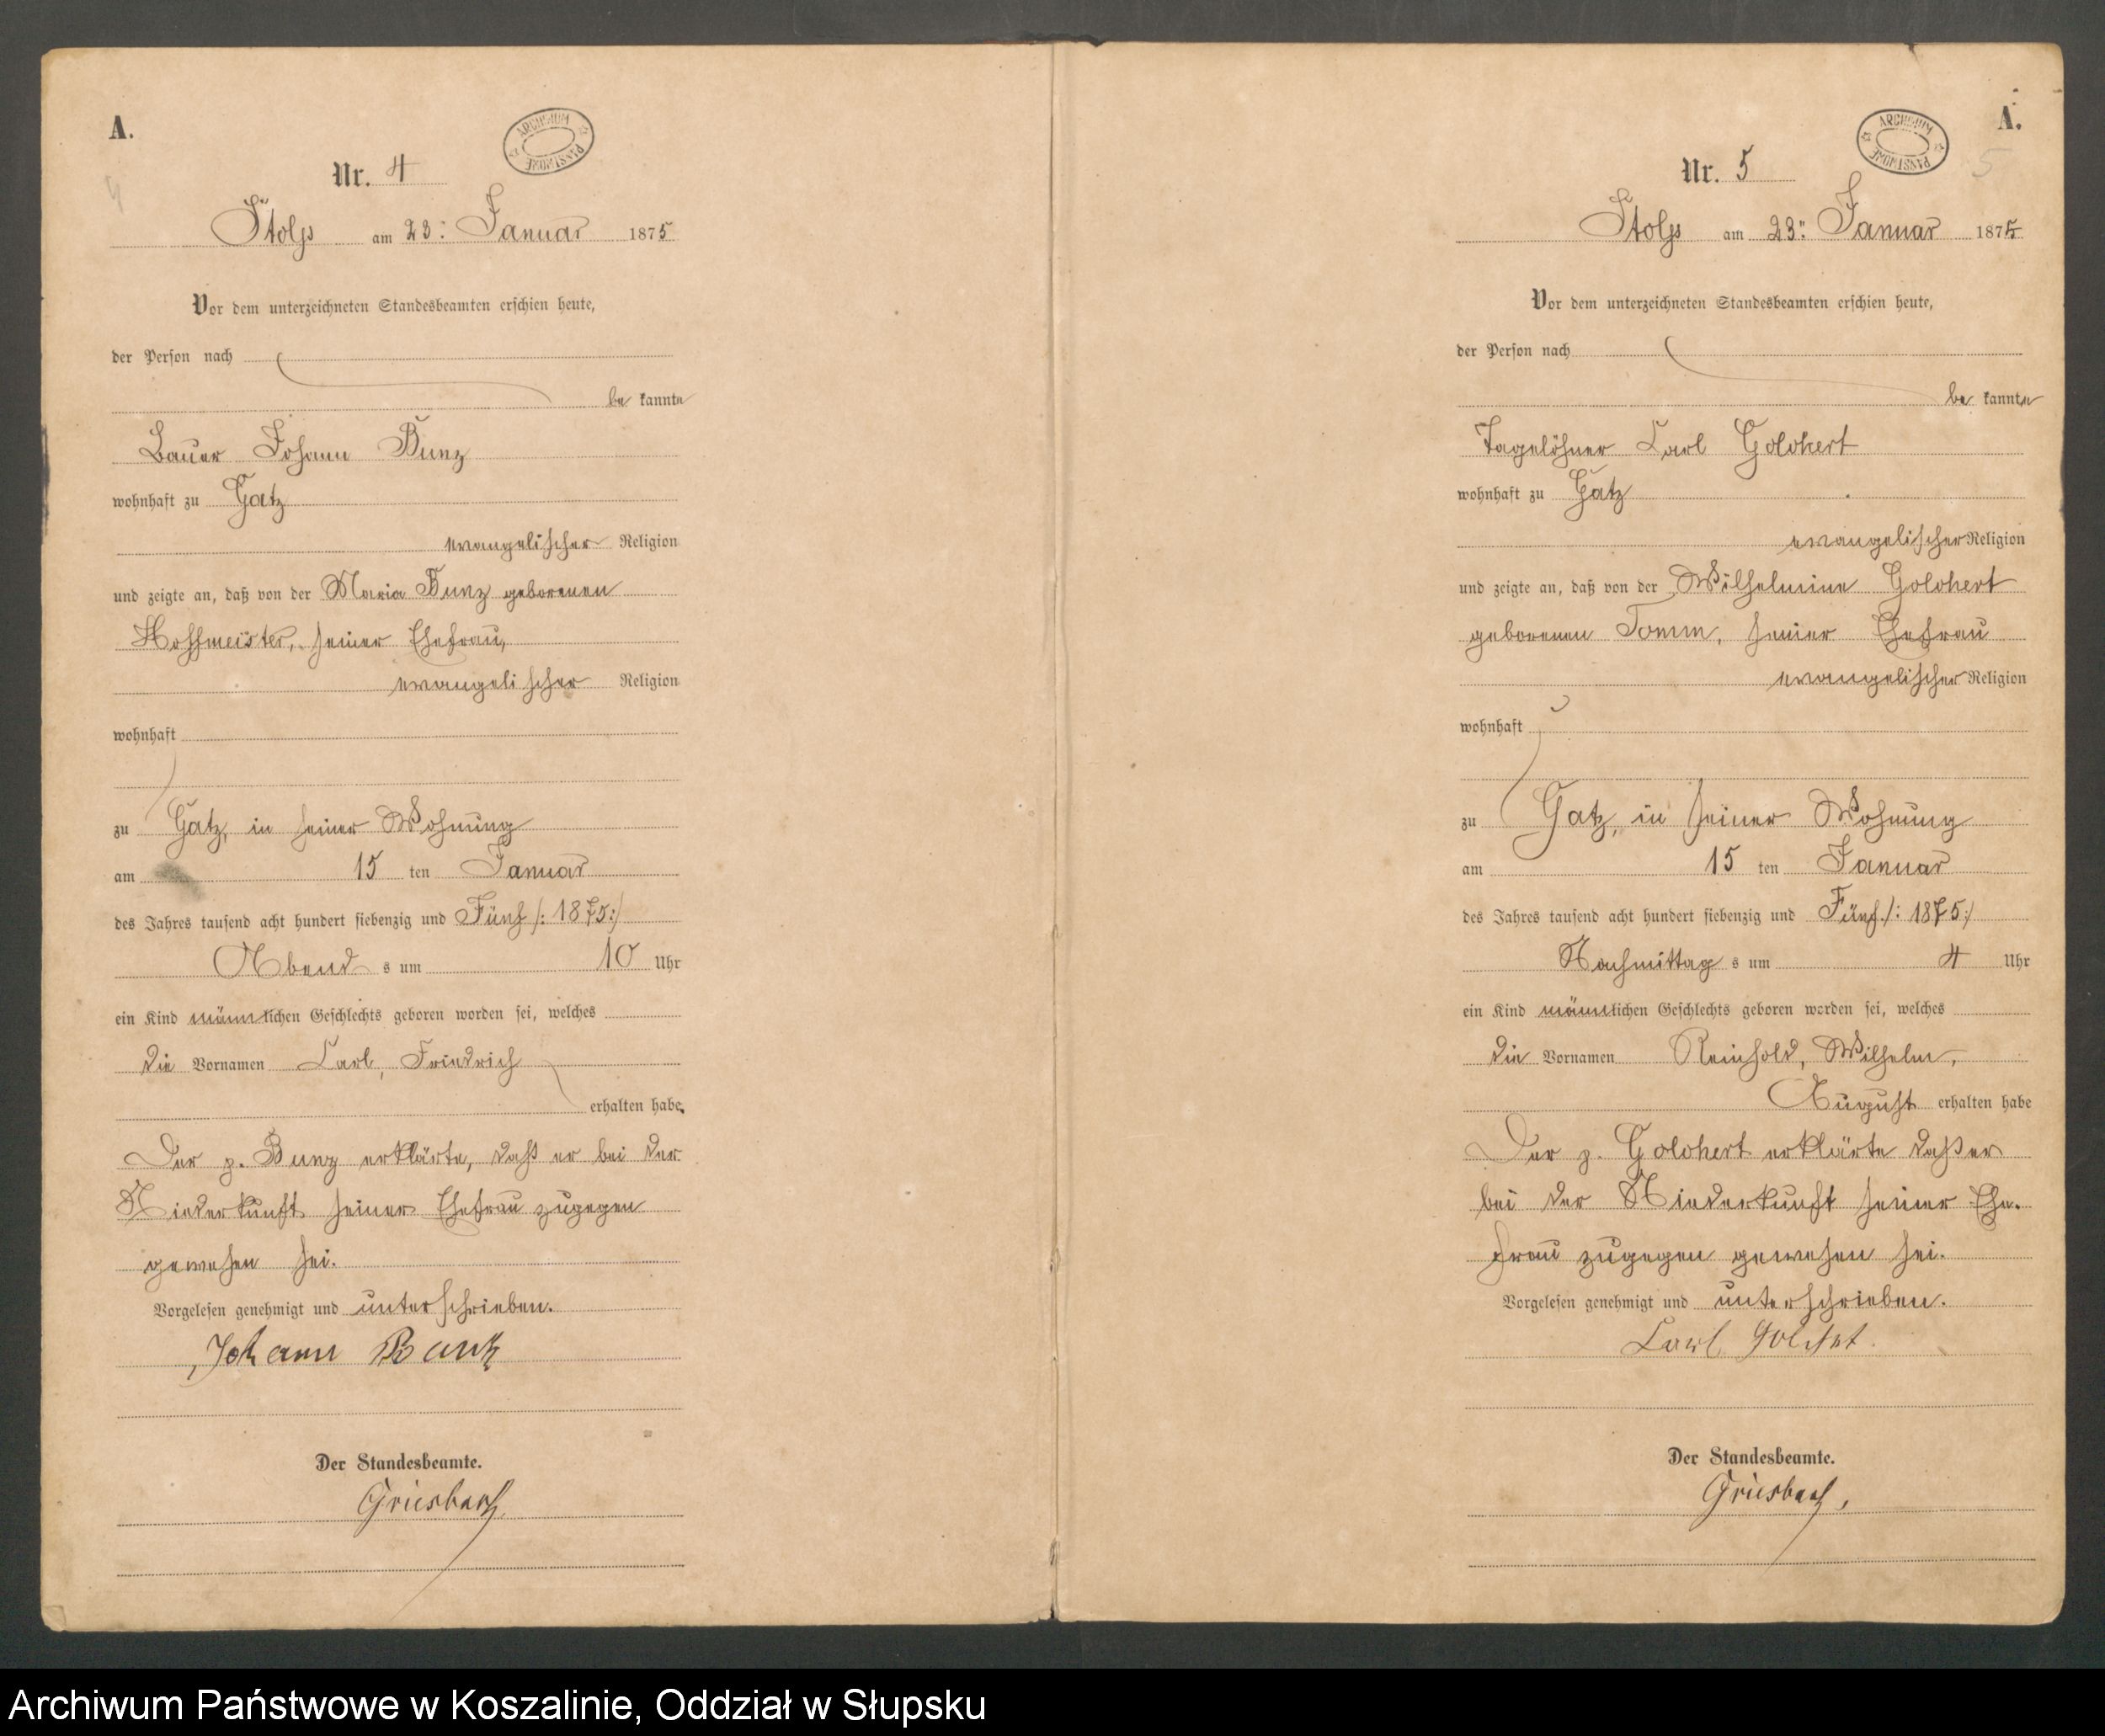 A.
ARCHIWUM PAŃSTWOWE
Nr. 4
4
Stolp am 23: Januar 1875
Vor dem unterzeichneten Standesbeamten erschien heute,
der Person nach
be kannte
Bauer Johann Bunz
wohnhaft zu Gatz
evangelischer Religion
und zeigte an, daß von der Maria Bunz geborenen
Hoffmeister, seiner Ehefrau,
evangelischer Religion
wohnhaft
zu Gatz, in seiner Wohnung
am 15 ten Januar
des Jahres tausend acht hundert siebenzig und Fünf /: 1875:/
Abend s um 10 Uhr
ein Kind männlichen Geschlechts geboren worden sei, welches
die Vornamen Carl, Friedrich
erhalten habe.
Der p. Bunz erklärte, daß er bei der
Niederkunft seiner Ehefrau zugegen
gewesen sei.
Vorgelesen genehmigt und unterschrieben.
Johann Bunz
Der Standesbeamte.
Griesbach
A.
ARCHIWUM PAŃSTWOWE
Nr. 5
5
Stolp am 23: Januar 1875
Vor dem unterzeichneten Standesbeamten erschien heute,
der Person nach
be kannte
Tagelöhner Carl
wohnhaft zu Gatz
evangelischer Religion
und zeigte an, daß von der Wilhelmine
geborenen Tomm, seiner Ehefrau
evangelischer Religion
wohnhaft
zu Gatz, in seiner Wohnung
am 15 ten Januar
des Jahres tausend acht hundert siebenzig und Fünf /: 1875:/
Nachmittag s um 4 Uhr
ein Kind männlichen Geschlechts geboren worden sei, welches
die Vornamen Reinhold, Wilhelm,
August erhalten habe
Der p. erklärte daß er
bei der Niederkunft seiner Ehe-
frau zugegen gewesen sei.
Vorgelesen genehmigt und unterschrieben.
Carl
Der Standesbeamte.
Griesbach,
Archiwum Państwowe w Koszalinie, Oddział w Słupsku